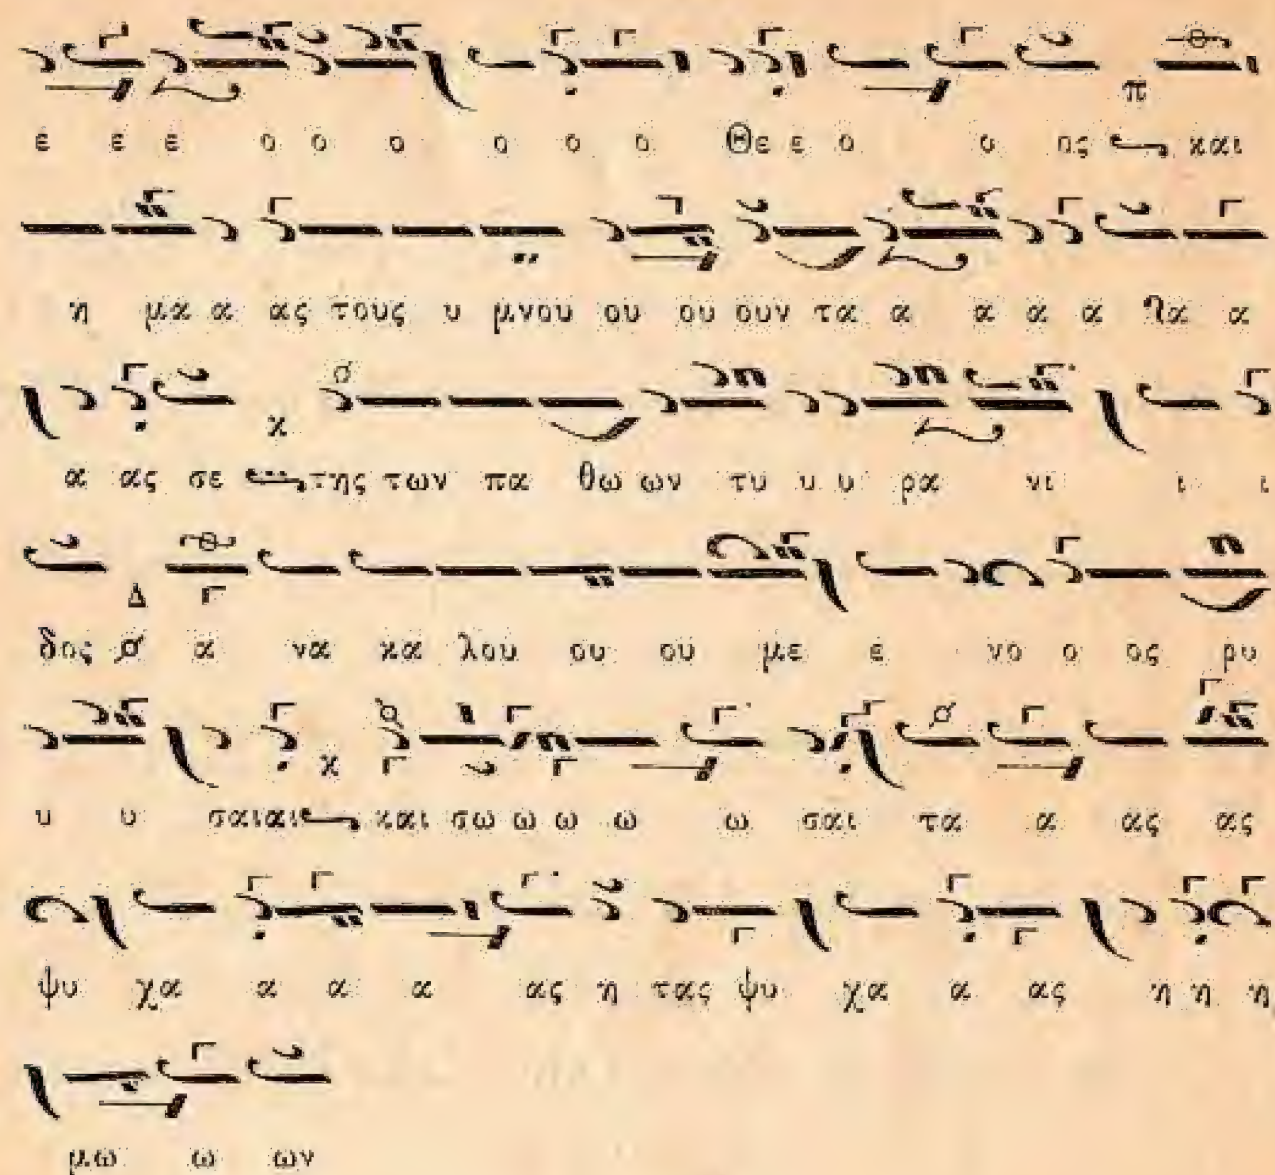 ε ε ε ο ο ο ο ο ο Θε ε ο ο ος και
η μα α ας τους υ μνου ου ου ουν τα α α α α λα α
α ας σε της των πα θω ων τυ υ υ ρα νι ι ι
δος α να κα λου ου ου με ε νο ο ος ρυ
υ υ σαιαι και σω ω ω ω ω σαι τα α ας ας
ψυ χα α α α ας η τας ψυ χα α ας η η η
μω ω ων